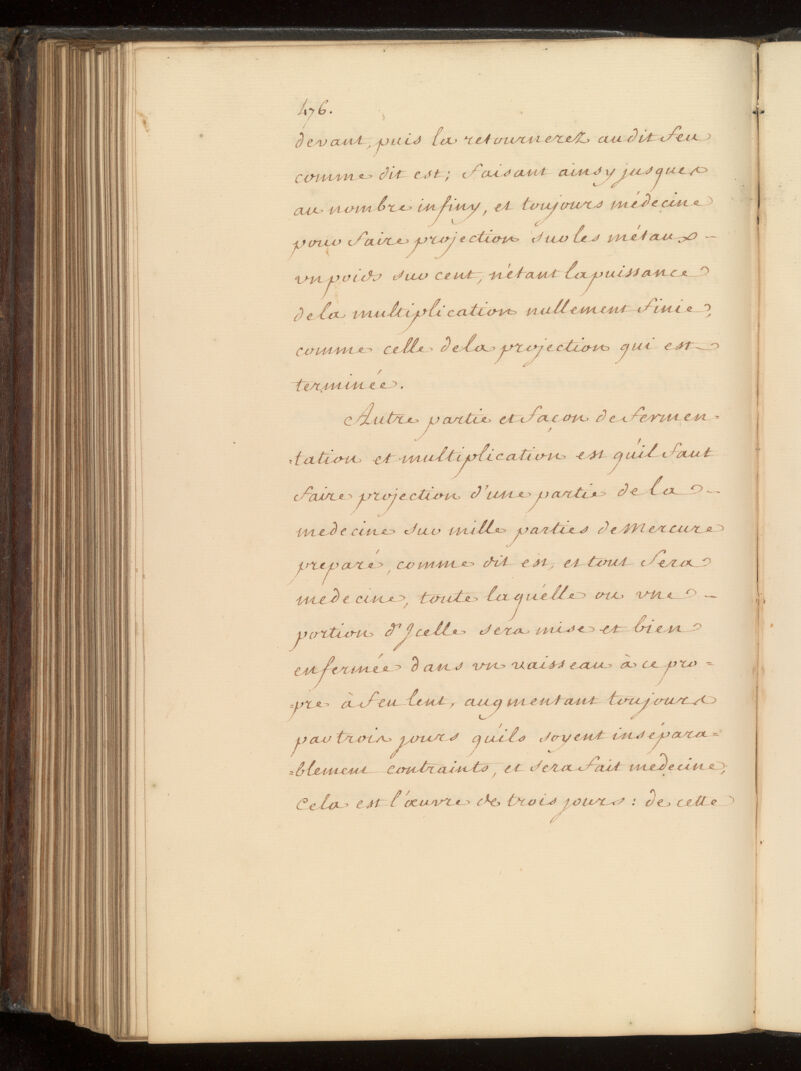 476.
devant, puis la retournerez audit feu
comme dit est; faisant ainsy jusques
au nombre infiny, et toujours médecine
pour faire projection sur les métaux –
un poids sur cent, n'étant la puissance
de la multiplication nullement finie,
comme celle de la projection qui est
terminée.
Autre partie et façon de fermen-
-tation et multiplication est qu'il faut
faire projection d'une partie de la –
medecine sur mille parties de Mercure
preparé, comme dit est, et tout sera
medecine, toute laquélle ou vne –
portion d'Jcelle sera mise et bien
enfermée dans vn vaisseau à ce pro=
=pre à feu lent, augmentant toujours
par trois jours qu'ils soyent insépara=
=blement contraints, et sera fait médecine,
Cela est l'œuvre de trois jours : de cette